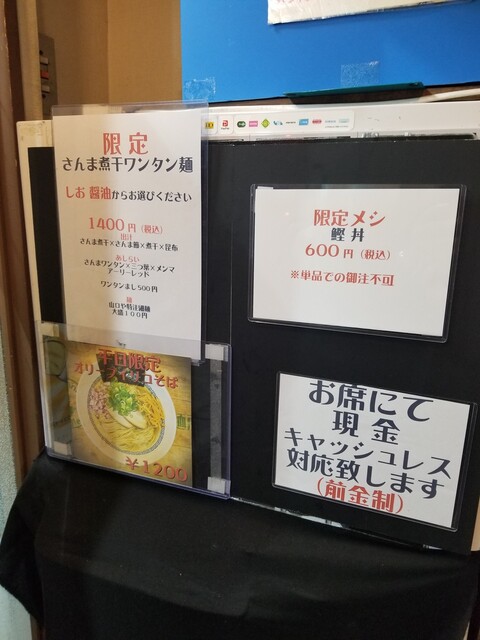 限定
さんま煮干ワンタン麺
しお 醤油からお選びください
1400円（税込）
出汁
さんま煮干×さんま節×煮干×昆布
あしらい
さんまワンタン×三つ葉×メンマ
アーリーレッド
ワンタンまし500円
麺
山口や特注細麺
大盛100円
平日限定
¥1200
限定メシ
鰹丼
600円（税込）
※単品での御注不可
お席にて
現金
キャッシュレス
対応致します
(前金制)